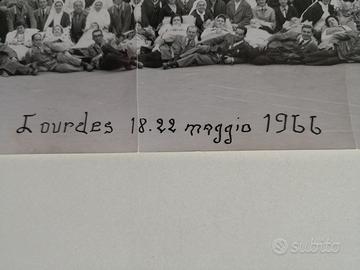 Lourdes 18.22 maggio 1966
subito